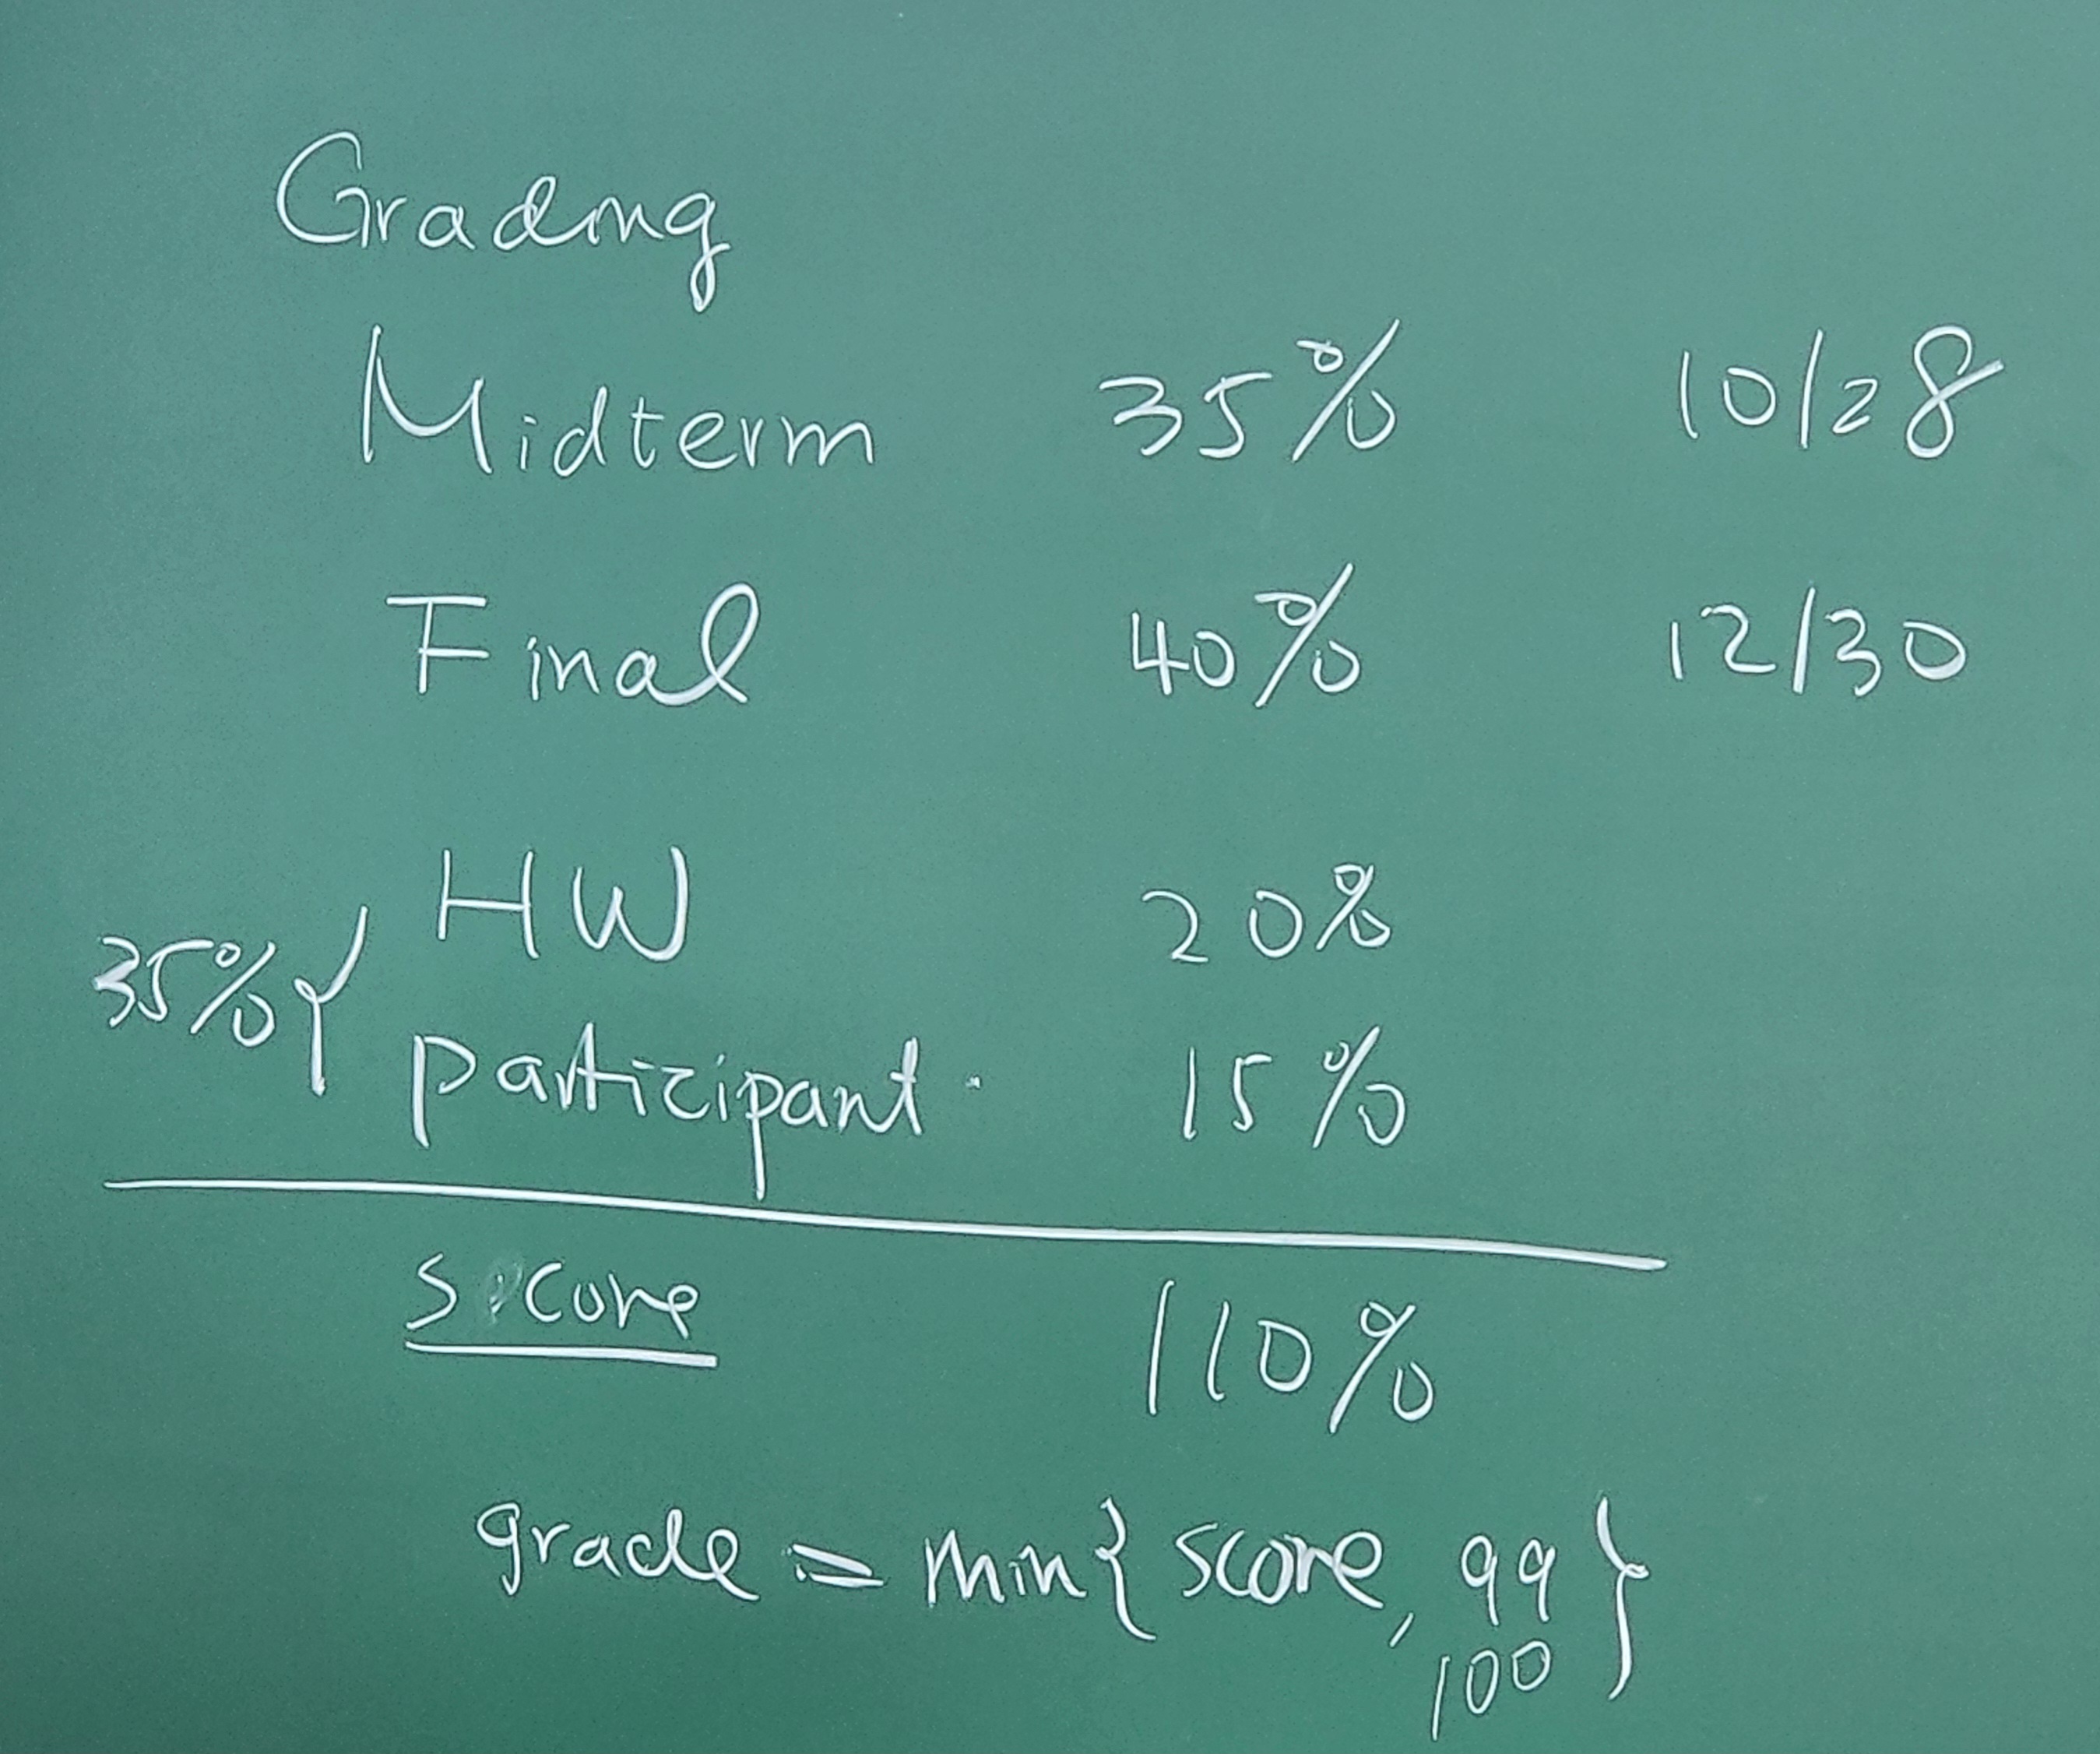 Grading
Midterm 35% 10/28
Final 40% 12/30
HW 20%
35% {
participant. 15%
score 110%
grade = min { score, 99 }
100